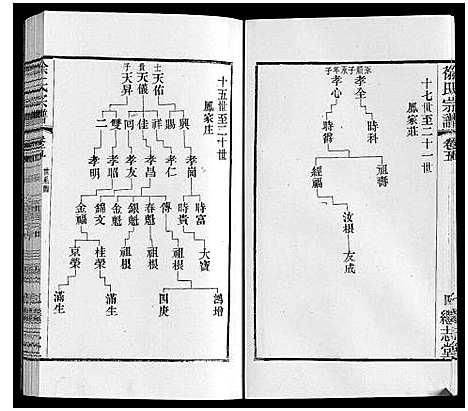 徐氏宗譜
卷五
繼志堂
十七世至二十一世
鳳家莊
孝全
孝心
時科
時爵
祖壽
經福
汝根
友成
十五世至二十世
鳳家庄
天佑
天儀
天昇
興
賜
祥
佳
雙
二
孝崗
孝仁
孝昌
孝友
孝昭
孝明
時富
時貴
傳
春魁
銀魁
金魁
錦文
金福
大寶
祖根
祖根
祖根
桂榮
京榮
鴻增
四庚
滿生
滿生